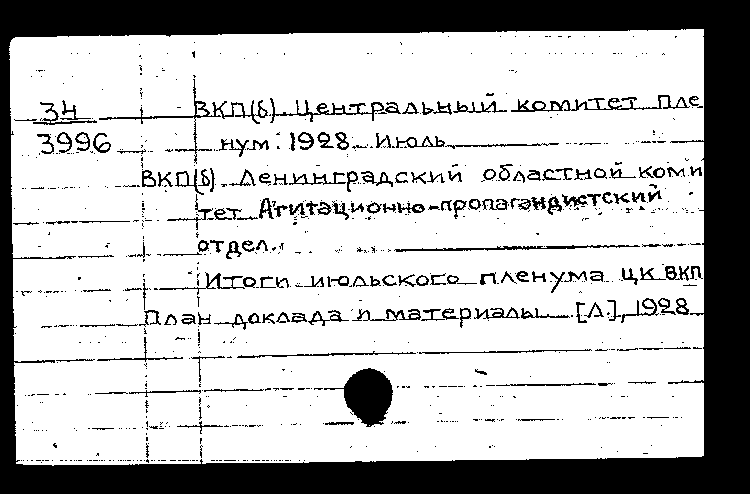 34
3996
ВКП(б). Центральный комитет Пле
нум. 1928. Июль.
ВКП(б). Ленинградский областной коми
тет Агитационно-пропагандистский
отдел.
Итоги июльского пленума ЦК ВКП
План доклада и материалы. [Л.], 1928